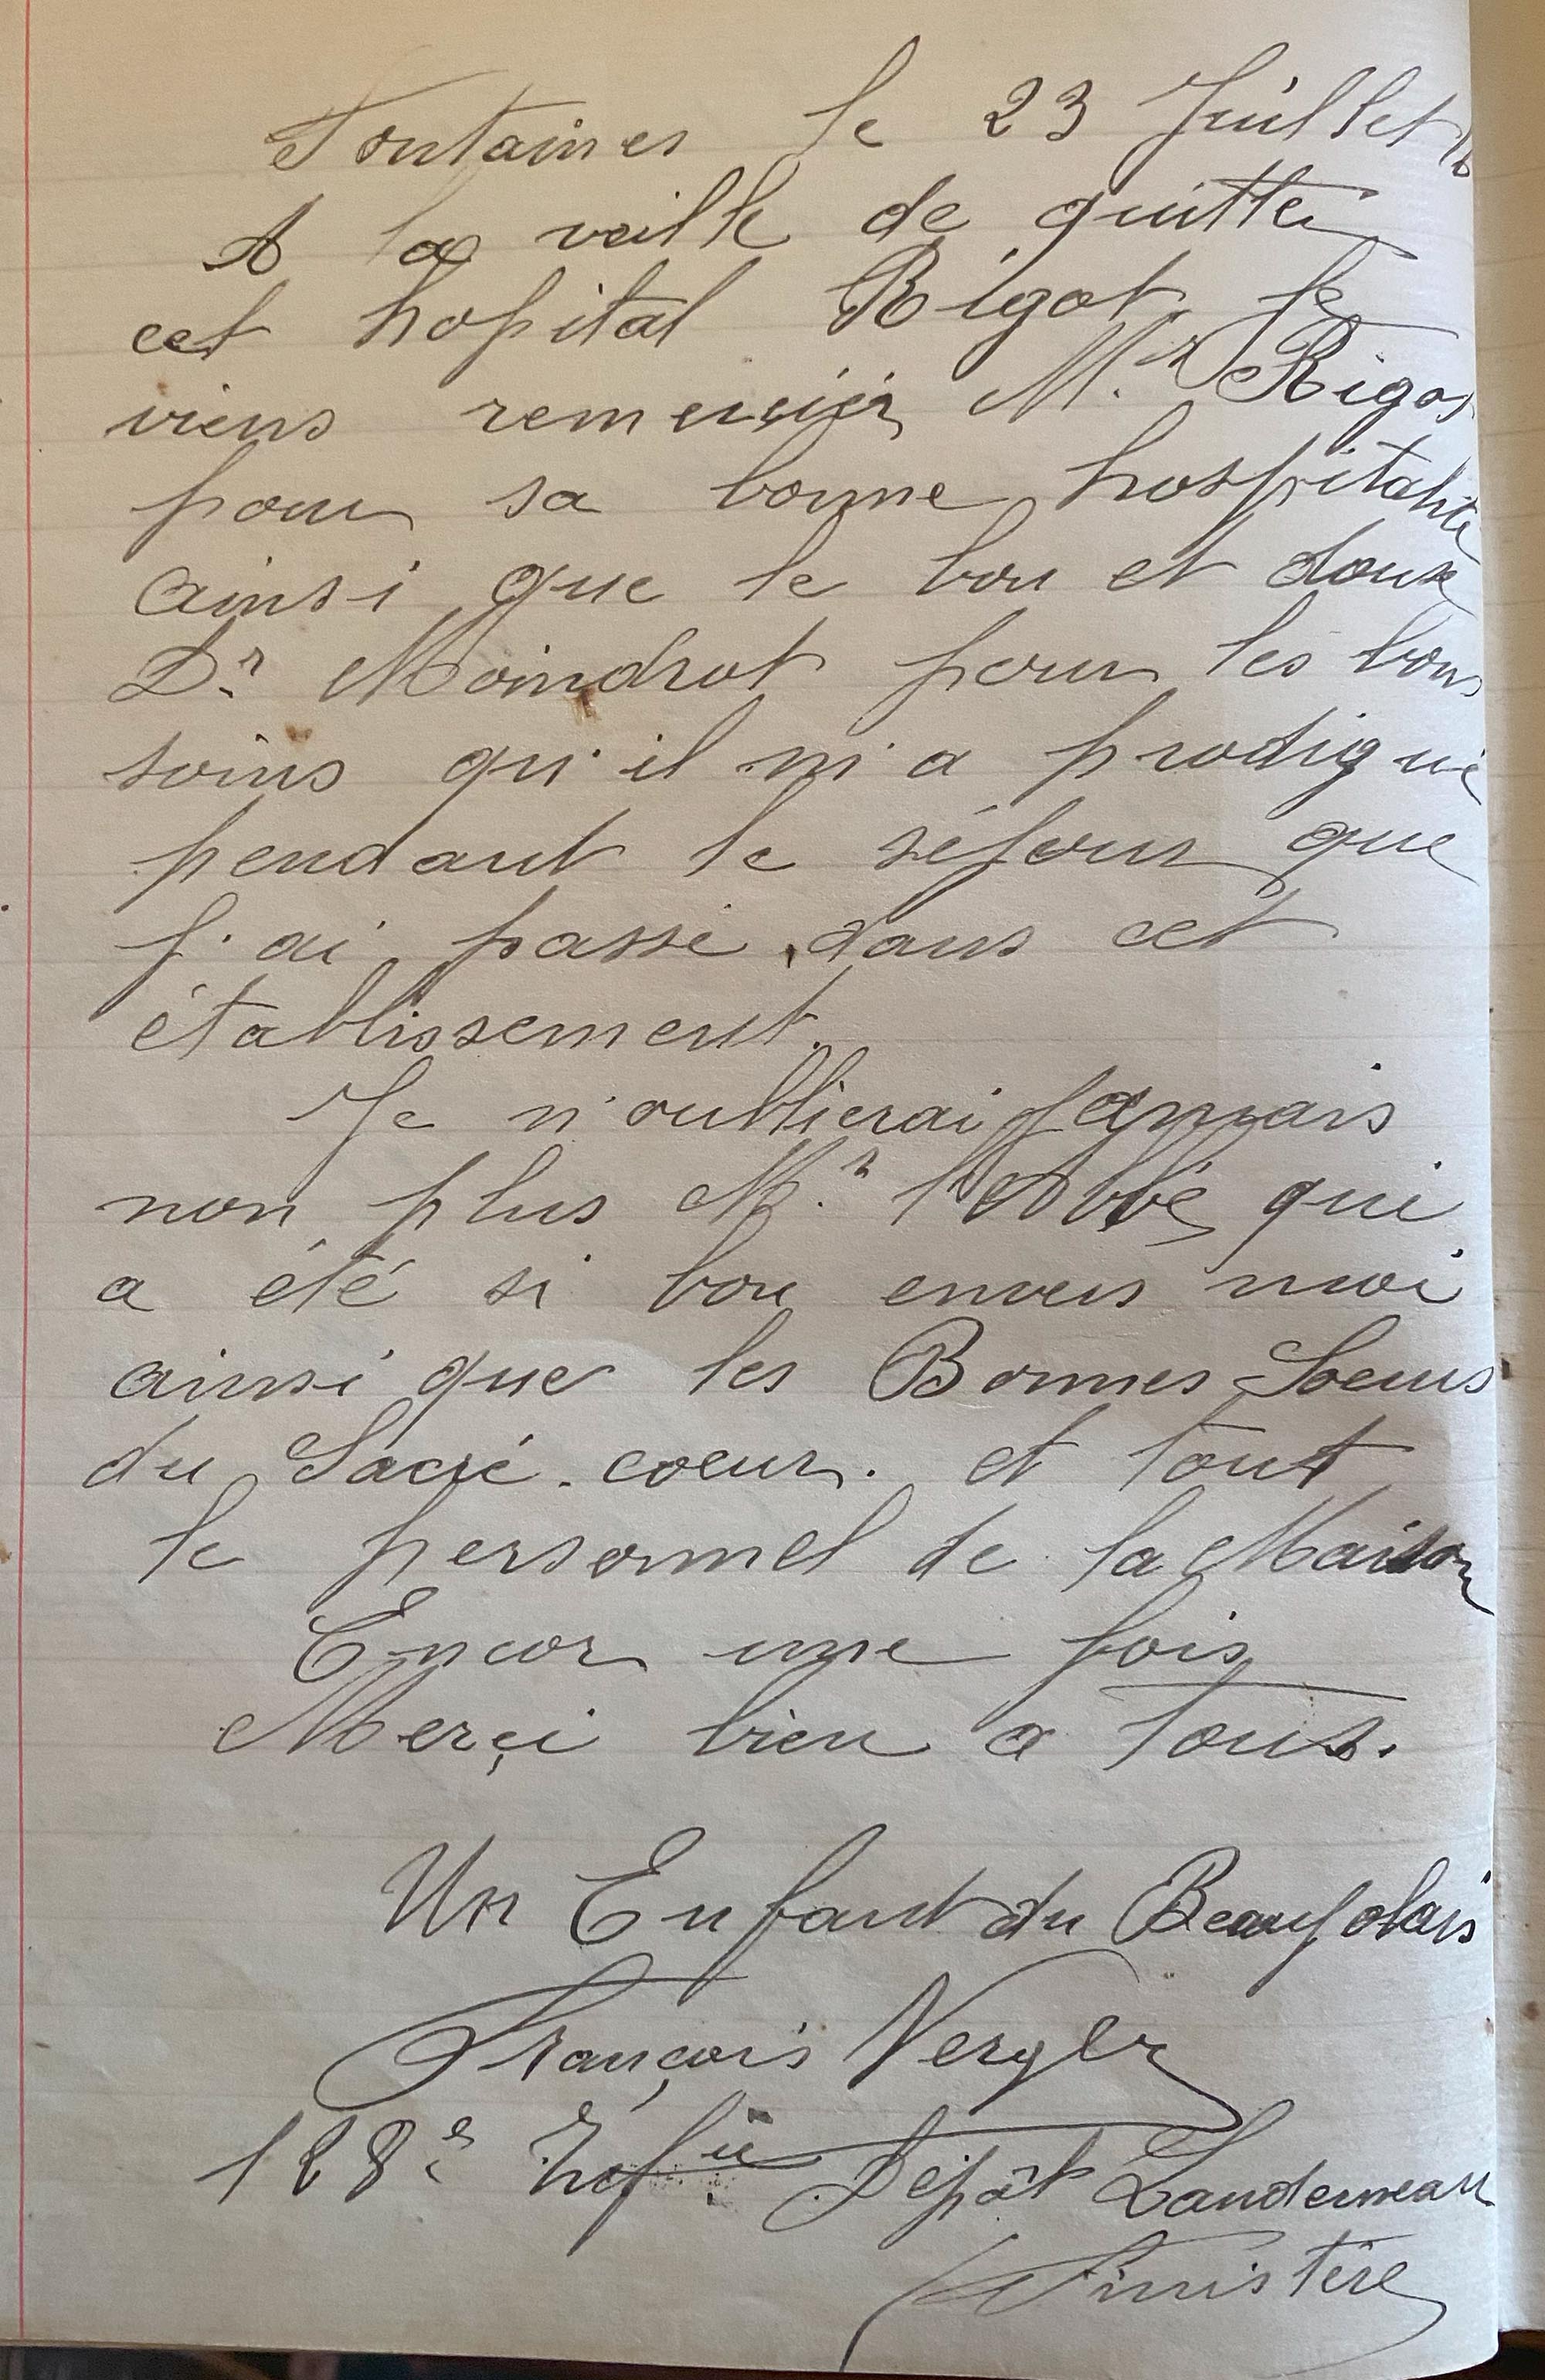 Fontaines le 23 Juillet
A la veille de quitter
cet hopital Rigot, je
viens remercier Mr Rigot
pour sa bonne hospitalité
ainsi que le bon et doux
Dr. Moindrot pour les bons
soins qu'il m'a prodigué
pendant le séjour que
j'ai passé dans cet
établissement.
Je n'oublierai jamais
non plus Mr l'Abbé, qui
a été si bon envers moi
ainsi que les Bonnes Soeurs
du Sacré-coeur. et tout
le personnel de la Maison
Encor une fois
Merçi bien a tous.
Un Enfant du Beaujolais
François Verger
128e Infie Dépôt Landerneau
Finistère